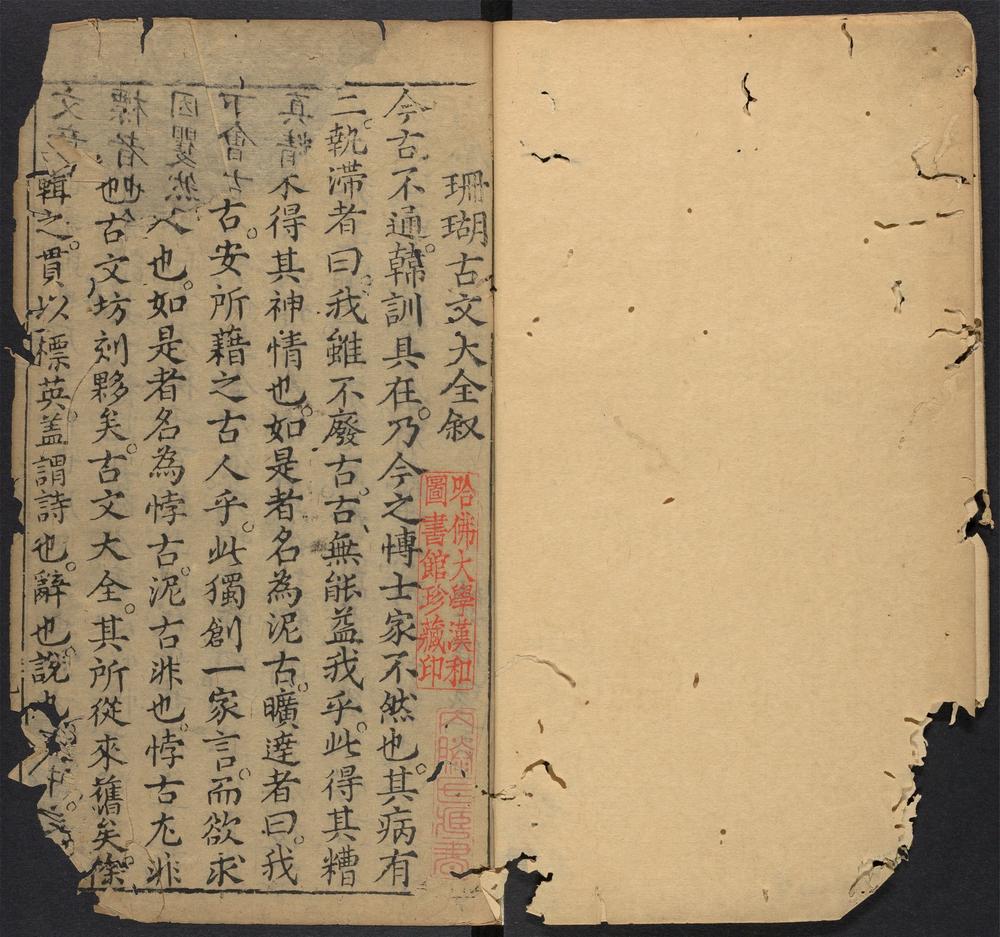 珊瑚古文大全叙
今古不通。韓訓具在。乃今之博士家不然也。其病有
二。執滯者曰。我雖不廢古。古無能益我乎。此得其糟
不得其神情也。如是者名為泥古。曠達者曰。我
古。安所藉之古人乎。此獨創一家言。而欲求
人也。如是者名為悖古。泥古非也。悖古尤非
也。古文坊刻夥矣。古文大全。其所從來舊矣。
輯之。貫以標英。盖謂詩也。辭也。說也
真情
下會古
因瞿然
標者也
文
哈佛大學漢和
圖書館珍藏印